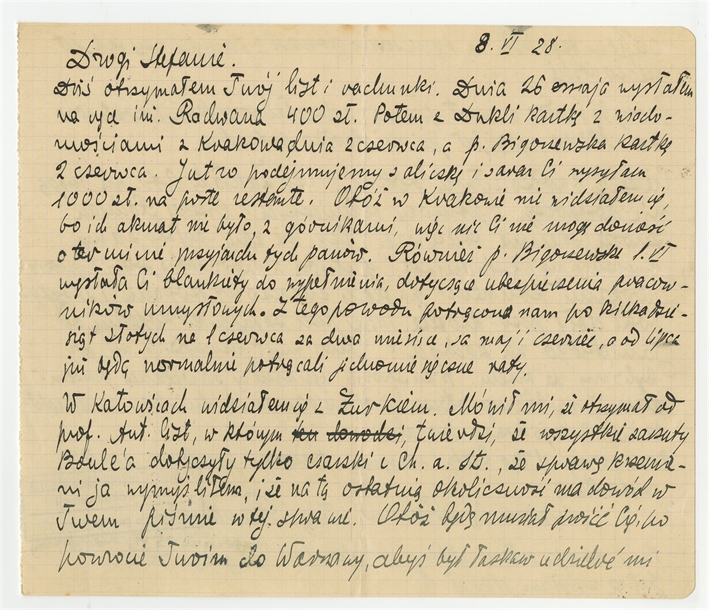 8. VI 28.
Drogi Stefanie.
Dziś otrzymałem Twój list i rachunki. Dnia 26 maja wysłałem
na ręce inż. Radwana 400 zł. Potem z Dukli kartkę z wiado-
mościami z Krakowa dnia 2 czerwca, a p. Bigoszewska kartkę
2 czerwca. Jutro podejmujemy zaliczkę i zaraz Ci wysyłam
1000 zł. na poste restante. Otóż w Krakowie nie widziałem się,
bo ich akurat nie było, z górnikami, więc nic Ci nie mogę donosić
o terminie przyjazdu tych panów. Również p. Bigoszewska 1. VI
wysłała Ci blankiety do wypełnienia, dotyczące ubezpieczenia pracow-
ników umysłowych. Z tego powodu potrącono nam po kilkadzie-
siąt złotych na 1 czerwca za dwa miesiące, za maj i czerwiec, a od lipca
już będą normalnie potrącali jednomiesięczne raty.
W Katowicach widziałem się z Żurkiem. Mówił mi, że otrzymał od
prof. Ant. list, w którym twierdzi, że wszystkie zarzuty
Boule'a dotyczyły tylko czaszki i Ch. a. St., że sprawę krzemie-
ni ja wymyśliłem, i że na tę ostatnią okoliczność ma dowód w
Twem piśmie w tej sprawie. Otóż będę musiał prosić Cię, po
powrocie Twoim do Warszawy, abyś był łaskaw udzielić mi